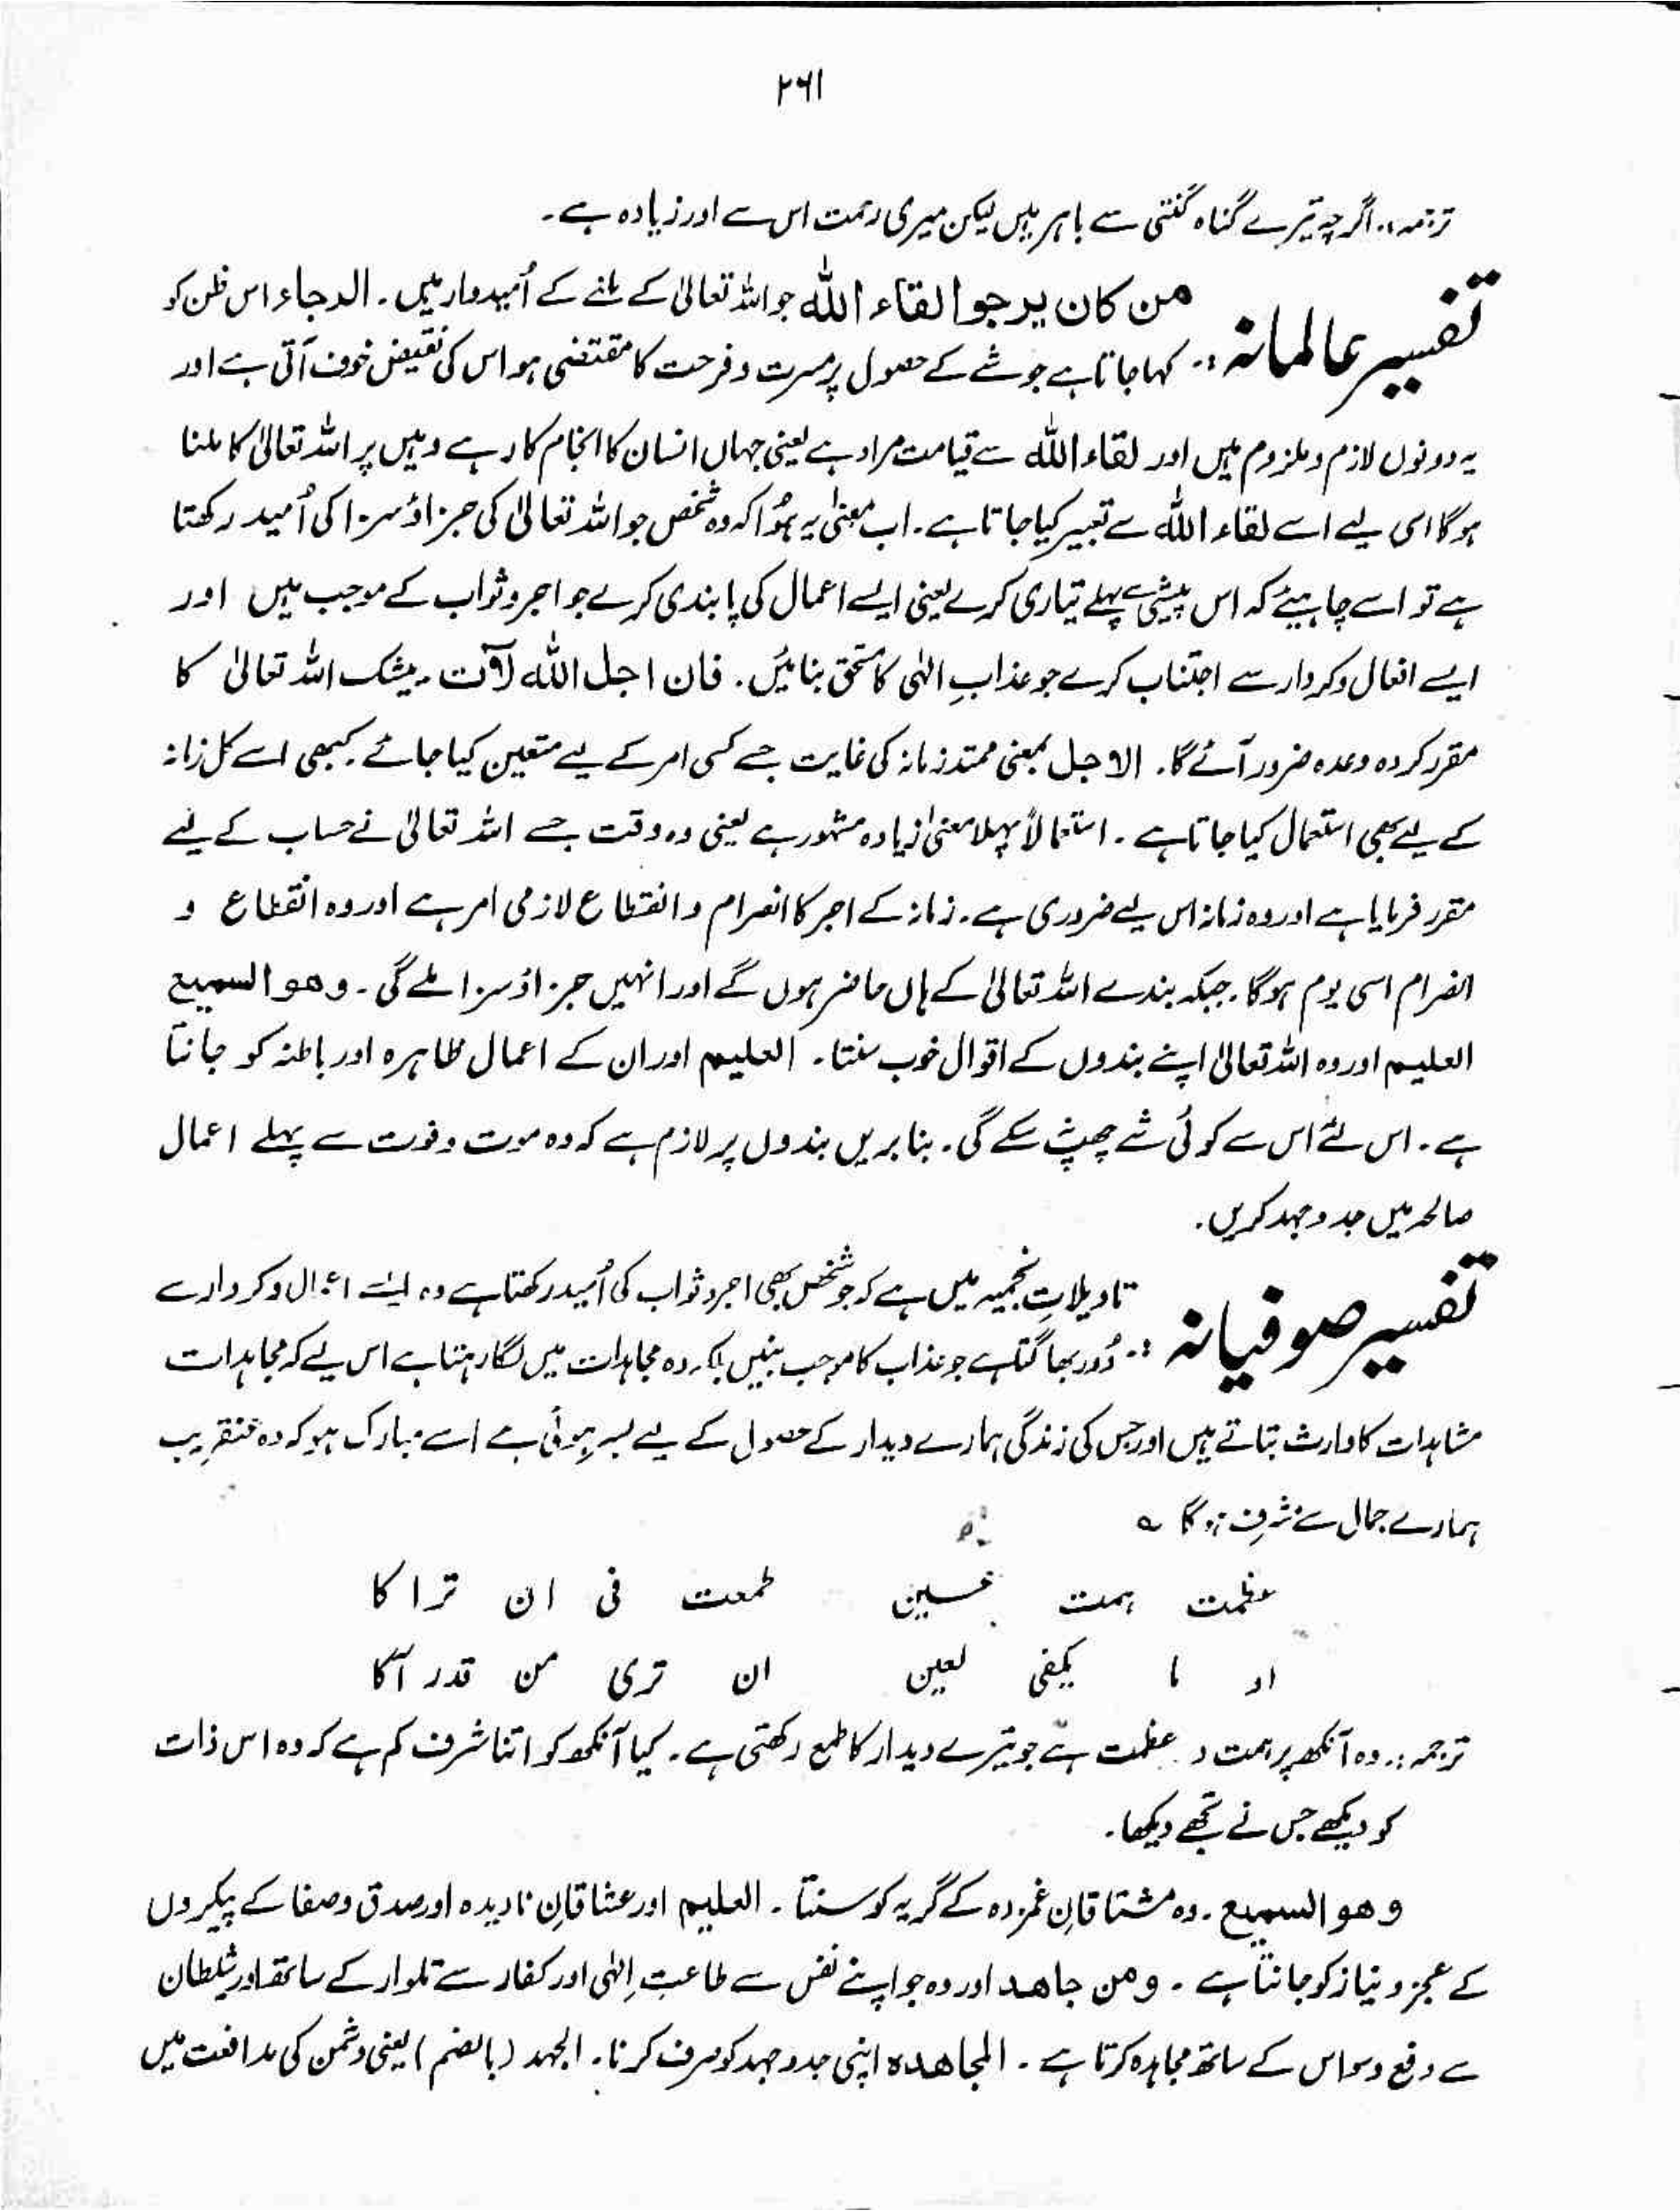 ۲۶۱
ترجمہ:۔ اگرچہ تیرے گناہ گنتی سے باہر ہیں لیکن میری رحمت اس سے اور زیادہ ہے۔
تفسیر عالمانہ :۔ من کان یرجوا لقاء اللہ جو اللہ تعالیٰ کے ملنے کے اُمیدوار ہیں۔ الرجاء اس ظن کو
کہا جاتا ہے جو شے کے حصول پر مسرت و فرحت کا مقتضی ہو اس کی نقیض خوف آتی ہے اور
یہ دونوں لازم و ملزوم ہیں اور لقاء اللہ سے قیامت مراد ہے یعنی جہاں انسان کا انجام کار ہے وہیں پر اللہ تعالیٰ کا ملنا
ہوگا اسی لیے اسے لقاء اللہ سے تعبیر کیا جاتا ہے۔ اب معنیٰ یہ ہُوا کہ وہ شخص جو اللہ تعالیٰ کی جزاؤ سزا کی اُمید رکھتا
ہے تو اسے چاہیئے کہ اس پیشی سے پہلے تیاری کرے یعنی ایسے اعمال کی پابندی کرے جو اجر و ثواب کے موجب ہیں اور
ایسے افعال و کردار سے اجتناب کرے جو عذابِ الٰہی کا مستحق بنائیں۔ فان اجل اللہ لآت بیشک اللہ تعالیٰ کا
مقرر کردہ وعدہ ضرور آئے گا۔ الاجل بمعنی ممتد زمانہ کی غایت جسے کسی امر کے لیے متعین کیا جائے۔ کبھی اسے کل زمانہ
کے لیے بھی استعمال کیا جاتا ہے۔ استعمالاً پہلا معنیٰ زیادہ مشہور ہے یعنی وہ وقت جسے اللہ تعالیٰ نے حساب کے لیے
مقرر فرمایا ہے اور وہ زمانہ اس لیے ضروری ہے۔ زمانہ کے اجر کا انصرام و انقطاع لازمی امر ہے اور وہ انقطاع و
انصرام اسی یوم ہوگا۔ جبکہ بندے اللہ تعالیٰ کے ہاں حاضر ہوں گے اور انہیں جزاؤ سزا ملے گی۔ وھو السمیع
العلیم اور وہ اللہ تعالیٰ اپنے بندوں کے اقوال خوب سنتا۔ العلیم اور ان کے اعمال ظاہرہ اور باطنہ کو جانتا
ہے۔ اس لئے اس سے کوئی شے چھپ سکے گی۔ بنا بریں بندوں پر لازم ہے کہ وہ موت و فوت سے پہلے اعمال
صالحہ میں جد و جہد کریں۔
تفسیر صوفیانہ :۔ تاویلاتِ نجمیہ میں ہے کہ جو شخص بھی اجر و ثواب کی اُمید رکھتا ہے وہ ایسے اعمال و کردار سے
دُور بھاگتا ہے جو عذاب کا موجب بنیں بلکہ وہ مجاہدات میں لگا رہتا ہے اس لیے کہ مجاہدات
مشاہدات کا وارث بناتے ہیں اور جس کی زندگی ہمارے دیدار کے حصول کے لیے بسر ہوئی ہے اسے مبارک ہو کہ وہ عنقریب
ہمارے جمال سے مشرف ہوگا ؎
عظمت ہمت عین طمعت فی ان تراکا
او ما یکفی لعین ان تری من قدر آکا
ترجمہ:۔ وہ آنکھ پر ہمت و عظمت ہے جو تیرے دیدار کا طمع رکھتی ہے۔ کیا آنکھ کو اتنا شرف کم ہے کہ وہ اس ذات
کو دیکھے جس نے تجھے دیکھا۔
وھو السمیع۔ وہ مشتاقانِ غمزدہ کے گریہ کو سنتا۔ العلیم اور عشاقانِ نادیدہ اور صدق و صفا کے پیکروں
کے عجز و نیاز کو جانتا ہے۔ ومن جاھد اور وہ جو اپنے نفس سے طاعتِ اِلٰہی اور کفار سے تلوار کے ساتھ اور شیطان
سے دفع وسواس کے ساتھ مجاہدہ کرتا ہے۔ المجاھدہ اپنی جد و جہد کو صرف کرنا۔ الجہد (بالضم) یعنی دشمن کی مدافعت میں